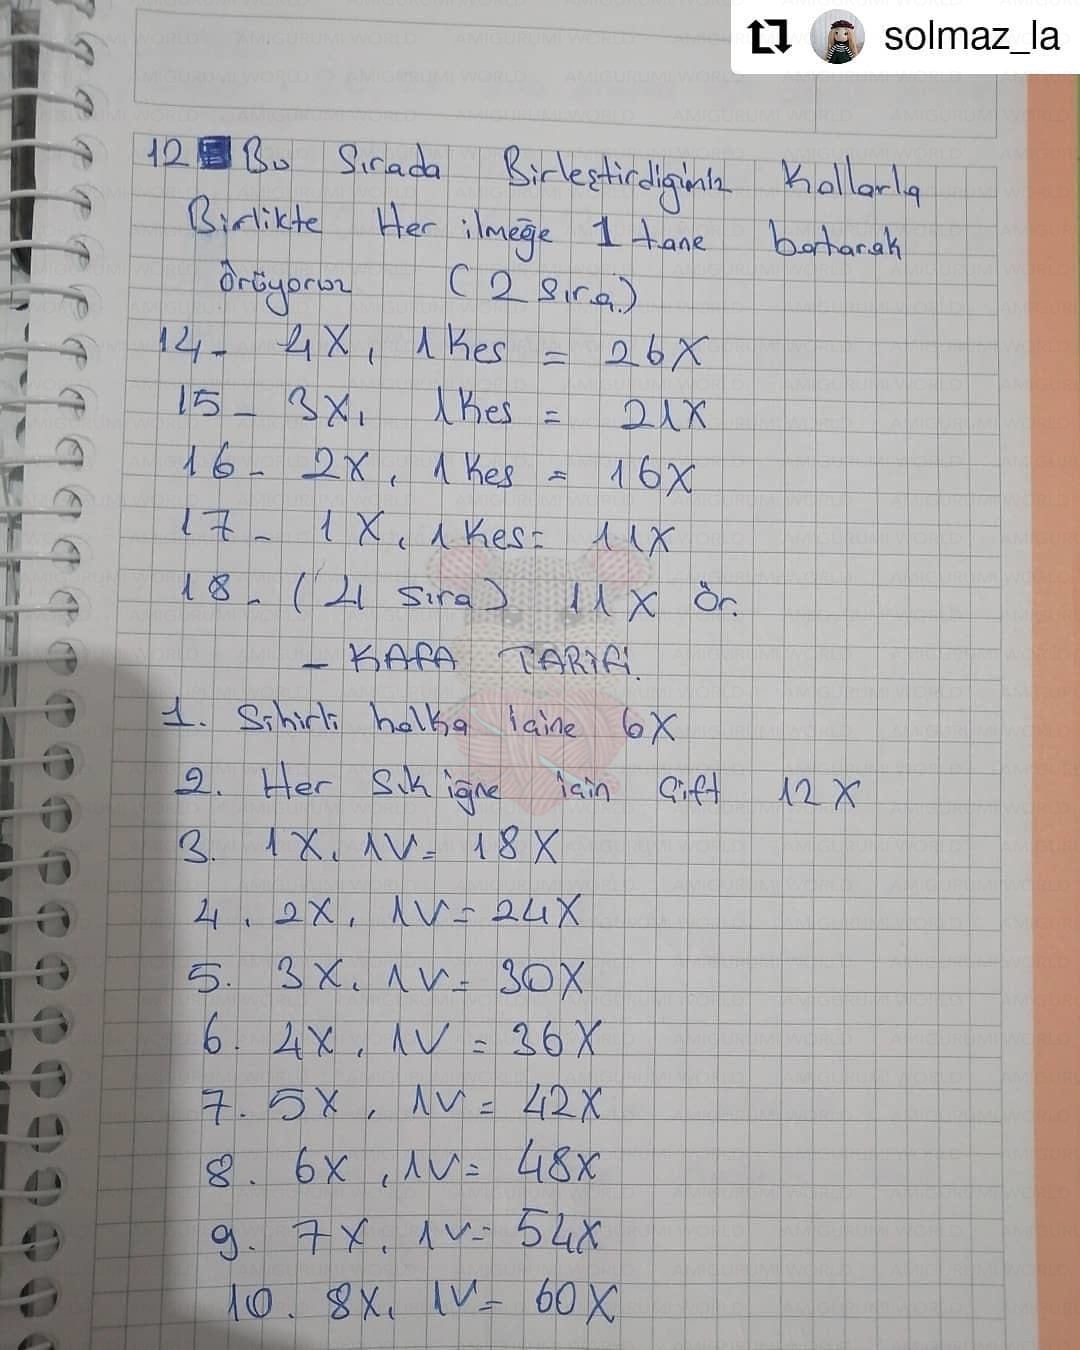 solmaz_la
12 Bu Sırada Birleştirdiğimiz Kollarla
Birlikte Her ilmeğe 1 tane batarak
örüyoruz (2 sıra)
14- 4X, 1 Kes = 26X
15- 3X, 1 Kes = 21X
16- 2X, 1 Kes = 16X
17- 1X, 1 Kes= 11X
18- (4 sıra) 11X ör.
- KAFA TARİFİ.
1. Sihirli halka içine 6X
2. Her sık iğne için çift 12X
3. 1X, 1V= 18X
4. 2X, 1V= 24X
5. 3X, 1V= 30X
6. 4X, 1V = 36X
7. 5X, 1V= 42X
8. 6X, 1V= 48X
9. 7X, 1V= 54X
10. 8X, 1V= 60X
AMIGURUMI WORLD